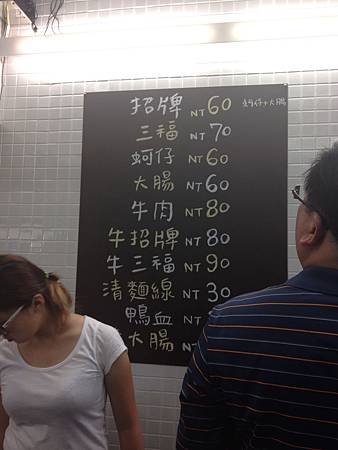 招牌 NT 60 蚵仔+大腸
三福 NT 70
蚵仔 NT 60
大腸 NT 60
牛肉 NT 80
牛招牌 NT 80
牛三福 NT 90
清麵線 NT 30
鴨血 NT
大腸 NT